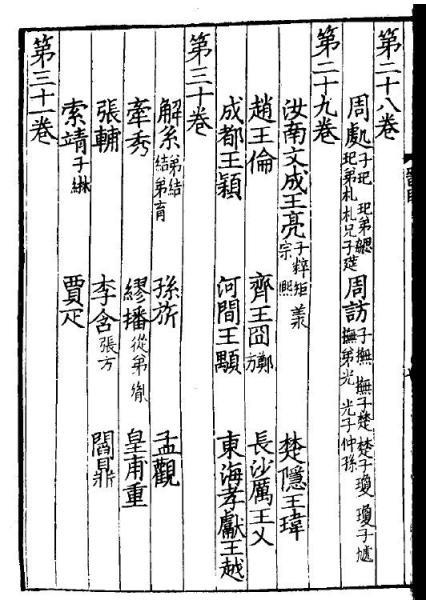 第二十八卷
周處 子玘 玘弟勰 玘弟札 札兄子莚 周訪 子撫 撫子楚 楚子瓊 瓊子虓 撫弟光 光子仲孫
第二十九卷
汝南文成王亮 子粹 矩 羕 宗 熙 楚隱王瑋
趙王倫 齊王冏 鄭方 長沙厲王乂
成都王穎 河間王顒 東海孝獻王越
第三十卷
解系 弟結 結弟育 孫旂 孟觀
牽秀 繆播 從弟胤 皇甫重
張輔 李含 張方 閻鼎
索靖 子綝 賈疋
第三十一卷